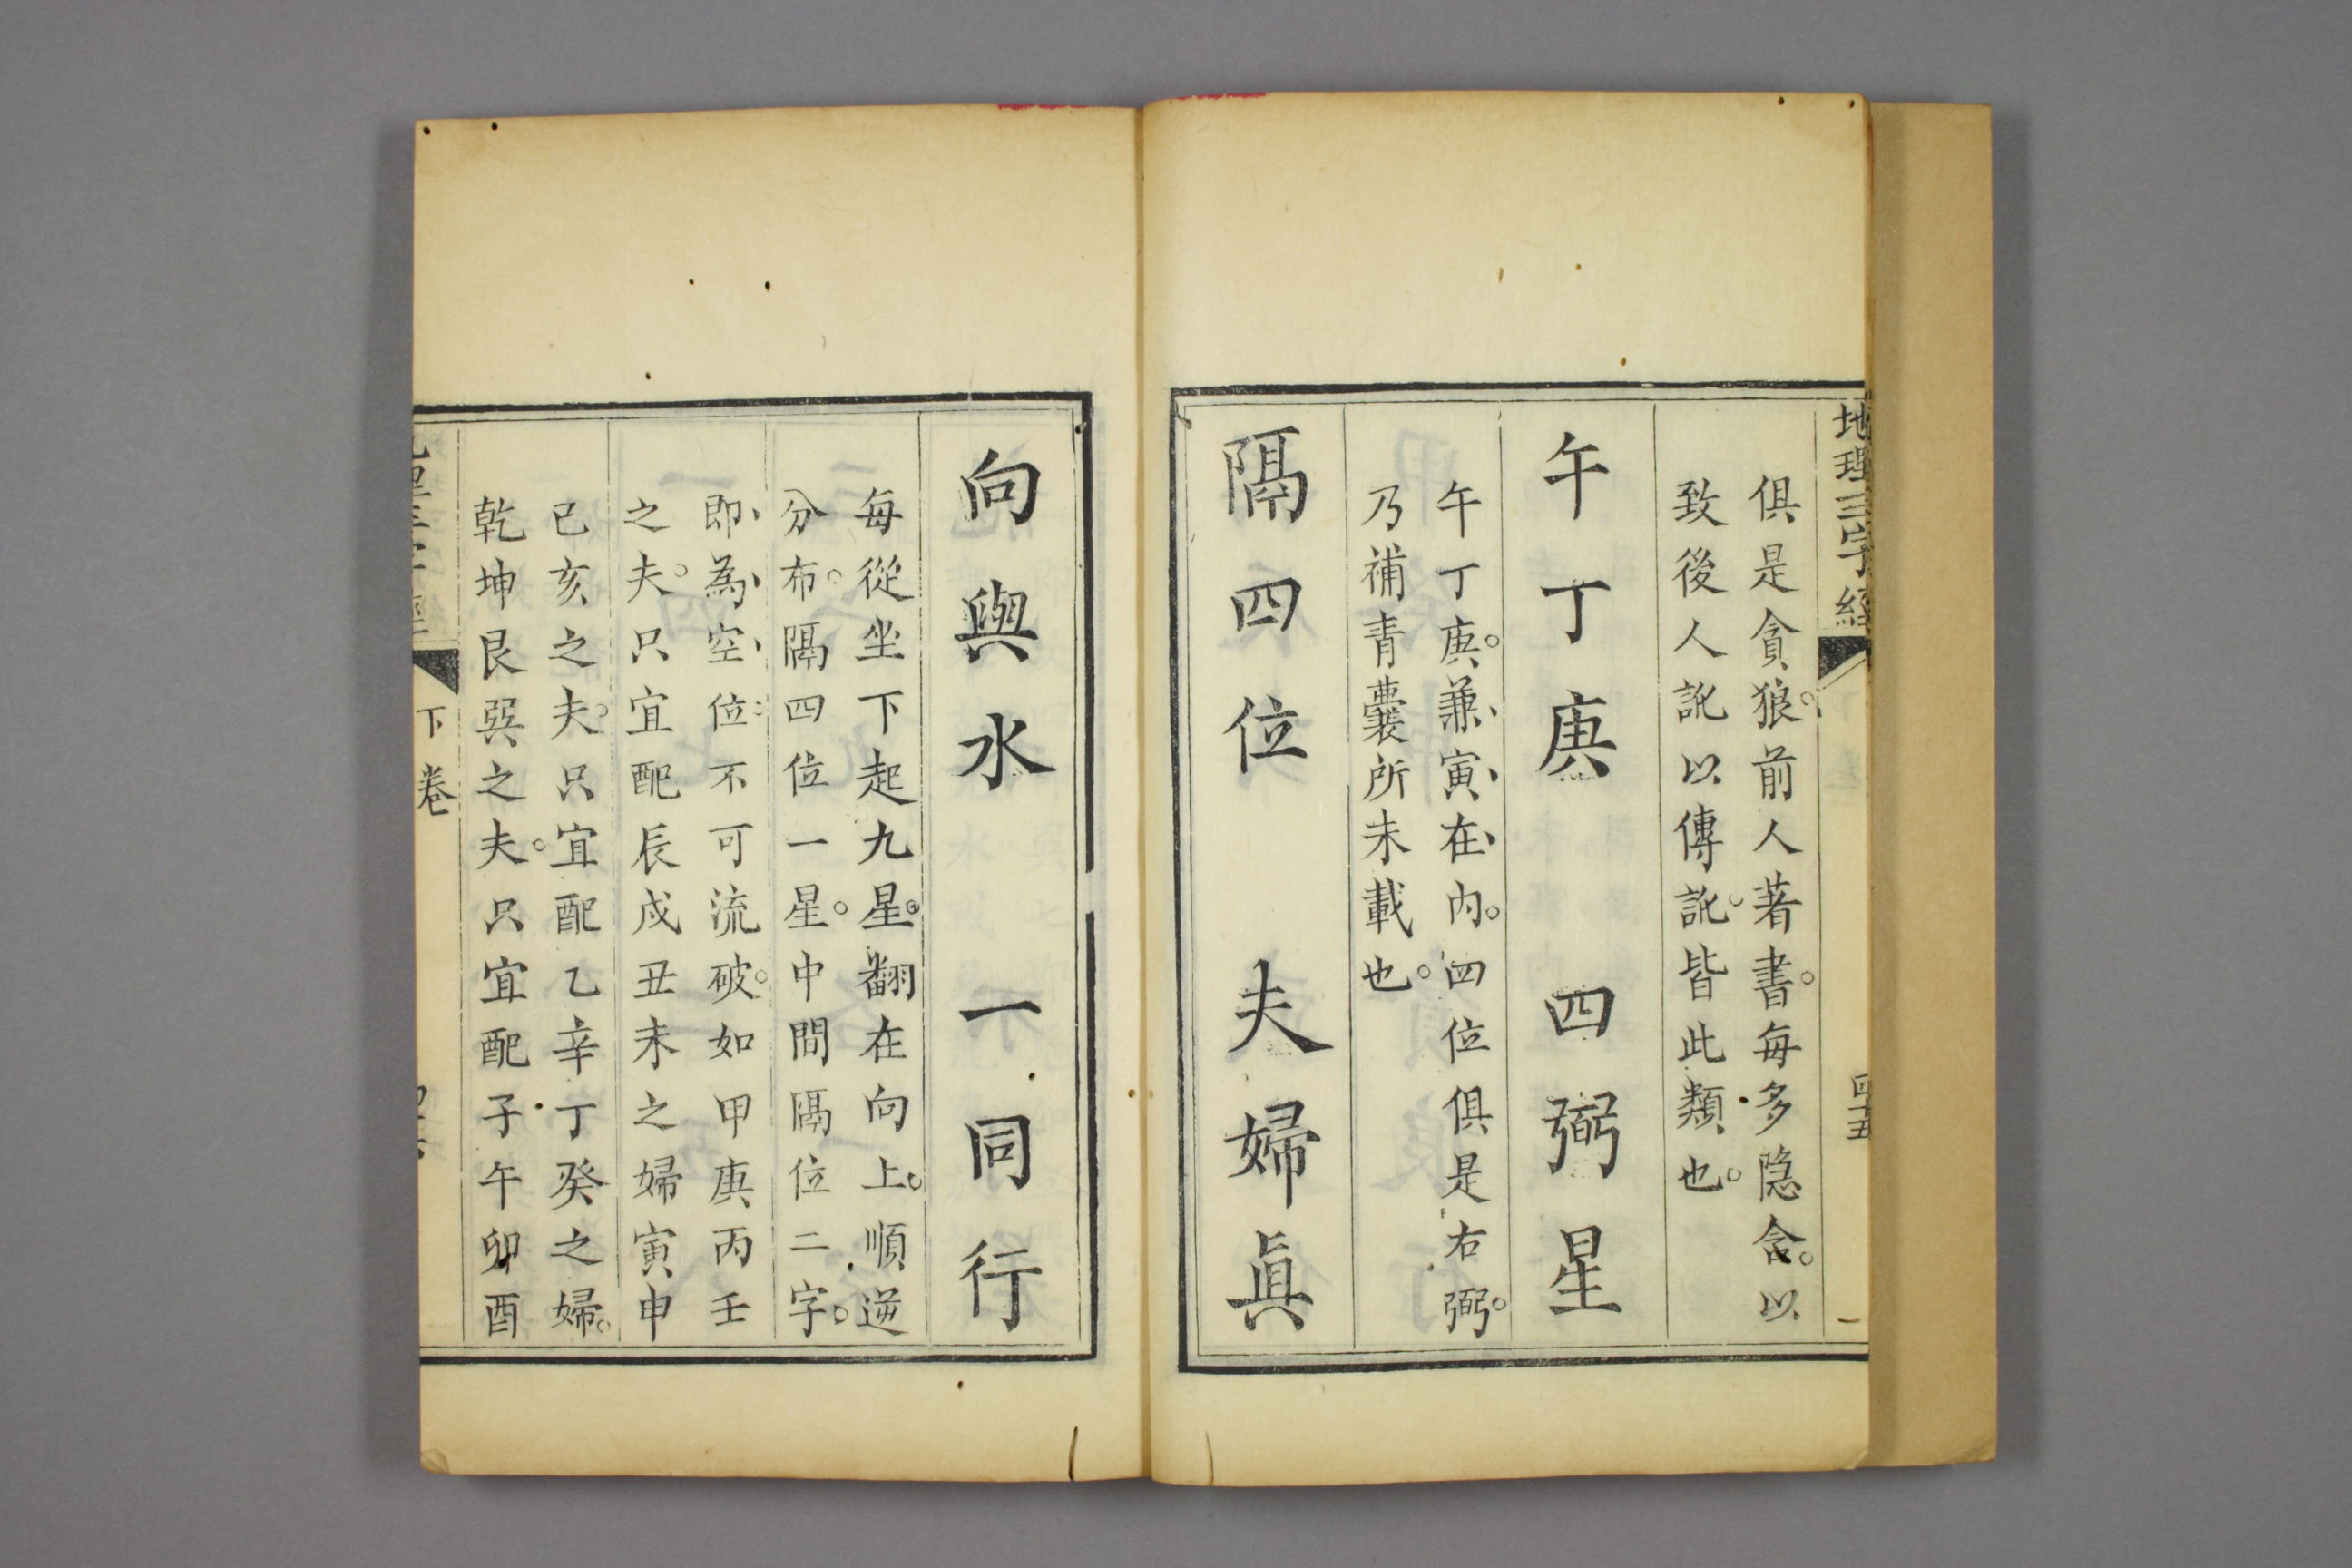 地理三字經
四十五
俱是貪狼。前人著書。每多隐含。以
致後人訛以傳訛。皆此類也。
午丁庚 四弼星
午丁庚。兼寅在內。四位俱是右弼。
乃補青囊所未載也。
隔四位 夫婦眞
向與水 一同行
每從坐下起九星。翻在向上。順逆
分布。隔四位一星。中間隔位二字。
即為空位不可流破。如甲庚丙壬
之夫。只宜配辰戌丑未之婦寅申
已亥之夫。只宜配乙辛丁癸之婦。
乾坤艮巽之夫。只宜配子午卯酉
下卷